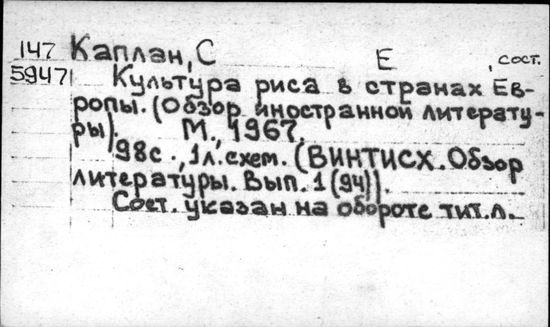 147 Каплан, С Е , сост.
59471 Культура риса в странах Ев-
ропы. (Обзор иностранной литерату-
ры). М., 1967.
98с., 1л.схем. (ВИНТИСХ. Обзор
литературы. Вып. 1(94)).
Сост. указан на обороте тит.л.